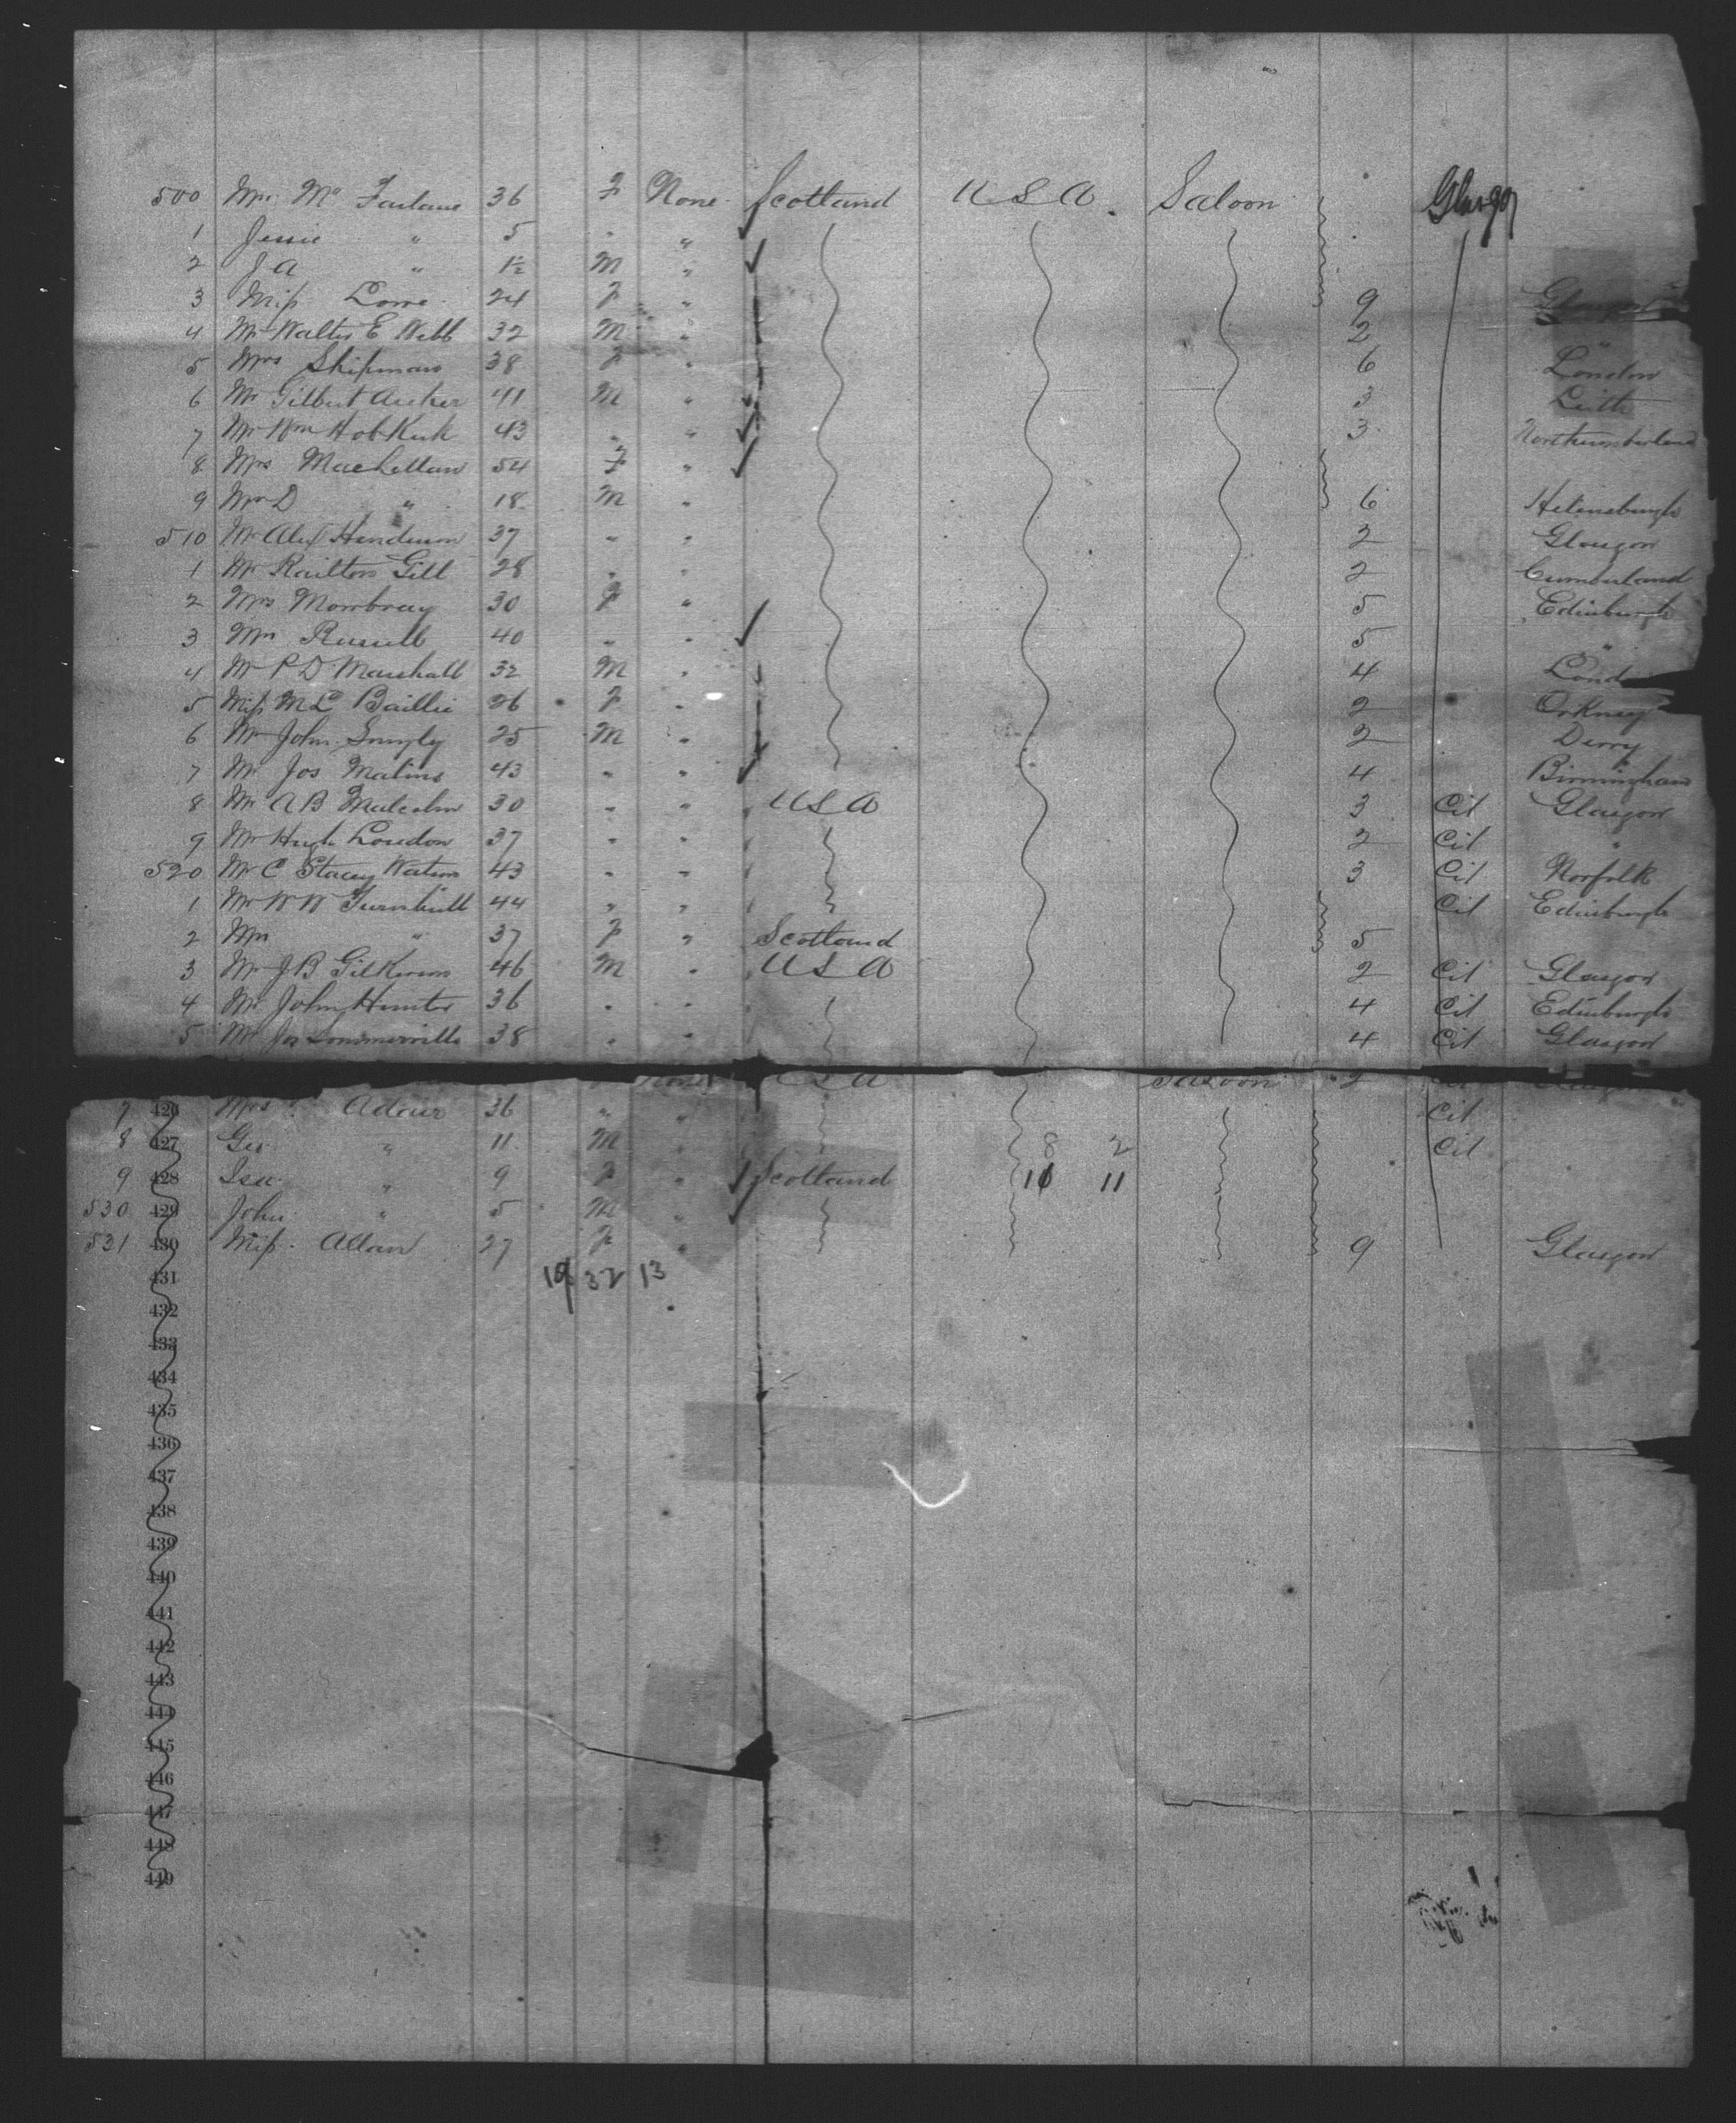 500 Mrs Mc Farlane 36 F None Scotland U S A. Saloon Glasgow
1 Jessie " 5 " "
2 J A " 1½ M "
3 Miss Lowe 24 F " 9 Glasgow
4 Mr Walter E Webb 32 M " 2 "
5 Mrs Shipman 38 F " 6 London
6 Mr Gilbert Archer 41 M " 3 Leith
7 Mr Wm Hobkirk 43 " " 3 Northumberland
8 Mrs MacLellan 54 F "
9 Mr D " 18 M " 6 Helensburgh
510 Mr Alex Henderson 37 " " 2 Glasgow
1 Mr Railton Gill 28 " " 2 Cumberland
2 Mrs Mombray 30 F " 5 Edinburgh
3 Mrs Russell 40 " " 5 "
4 Mr P D Marshall 32 M " 4 Lond
5 Miss M L Baillie 26 F " 2 Orkney
6 Mr John 25 M " 2 Derry
7 Mr Jos Malins 43 " " 4 Birmingham
8 Mr A B Malcolm 30 " " U S A 3 Cit Glasgow
9 Mr Hugh Loudon 37 " " 2 Cit "
520 Mr C Stacey Watson 43 " " 3 Cit Norfolk
1 Mr W W Turnbull 44 " " Cit Edinburgh
2 Mrs " 37 F " Scotland 5
3 Mr J B Gilkison 46 M " U S A 2 Cit Glasgow
4 Mr John Hunter 36 " " 4 Cit Edinburgh
5 Mr Jas Sommerville 38 " " 4 Cit Glasgow
None U S A Saloon 2
7 426 Mrs Adair 36 " " Cit
8 427 Geo " 11 M " 8 2 Cit
9 428 Isa " 9 F " Scotland 10 11
530 429 John " 5 M "
531 430 Miss Allan 27 F " 9 Glasgow
431 19 32 13
432
433
434
435
436
437
438
439
440
441
442
443
444
445
446
447
448
449